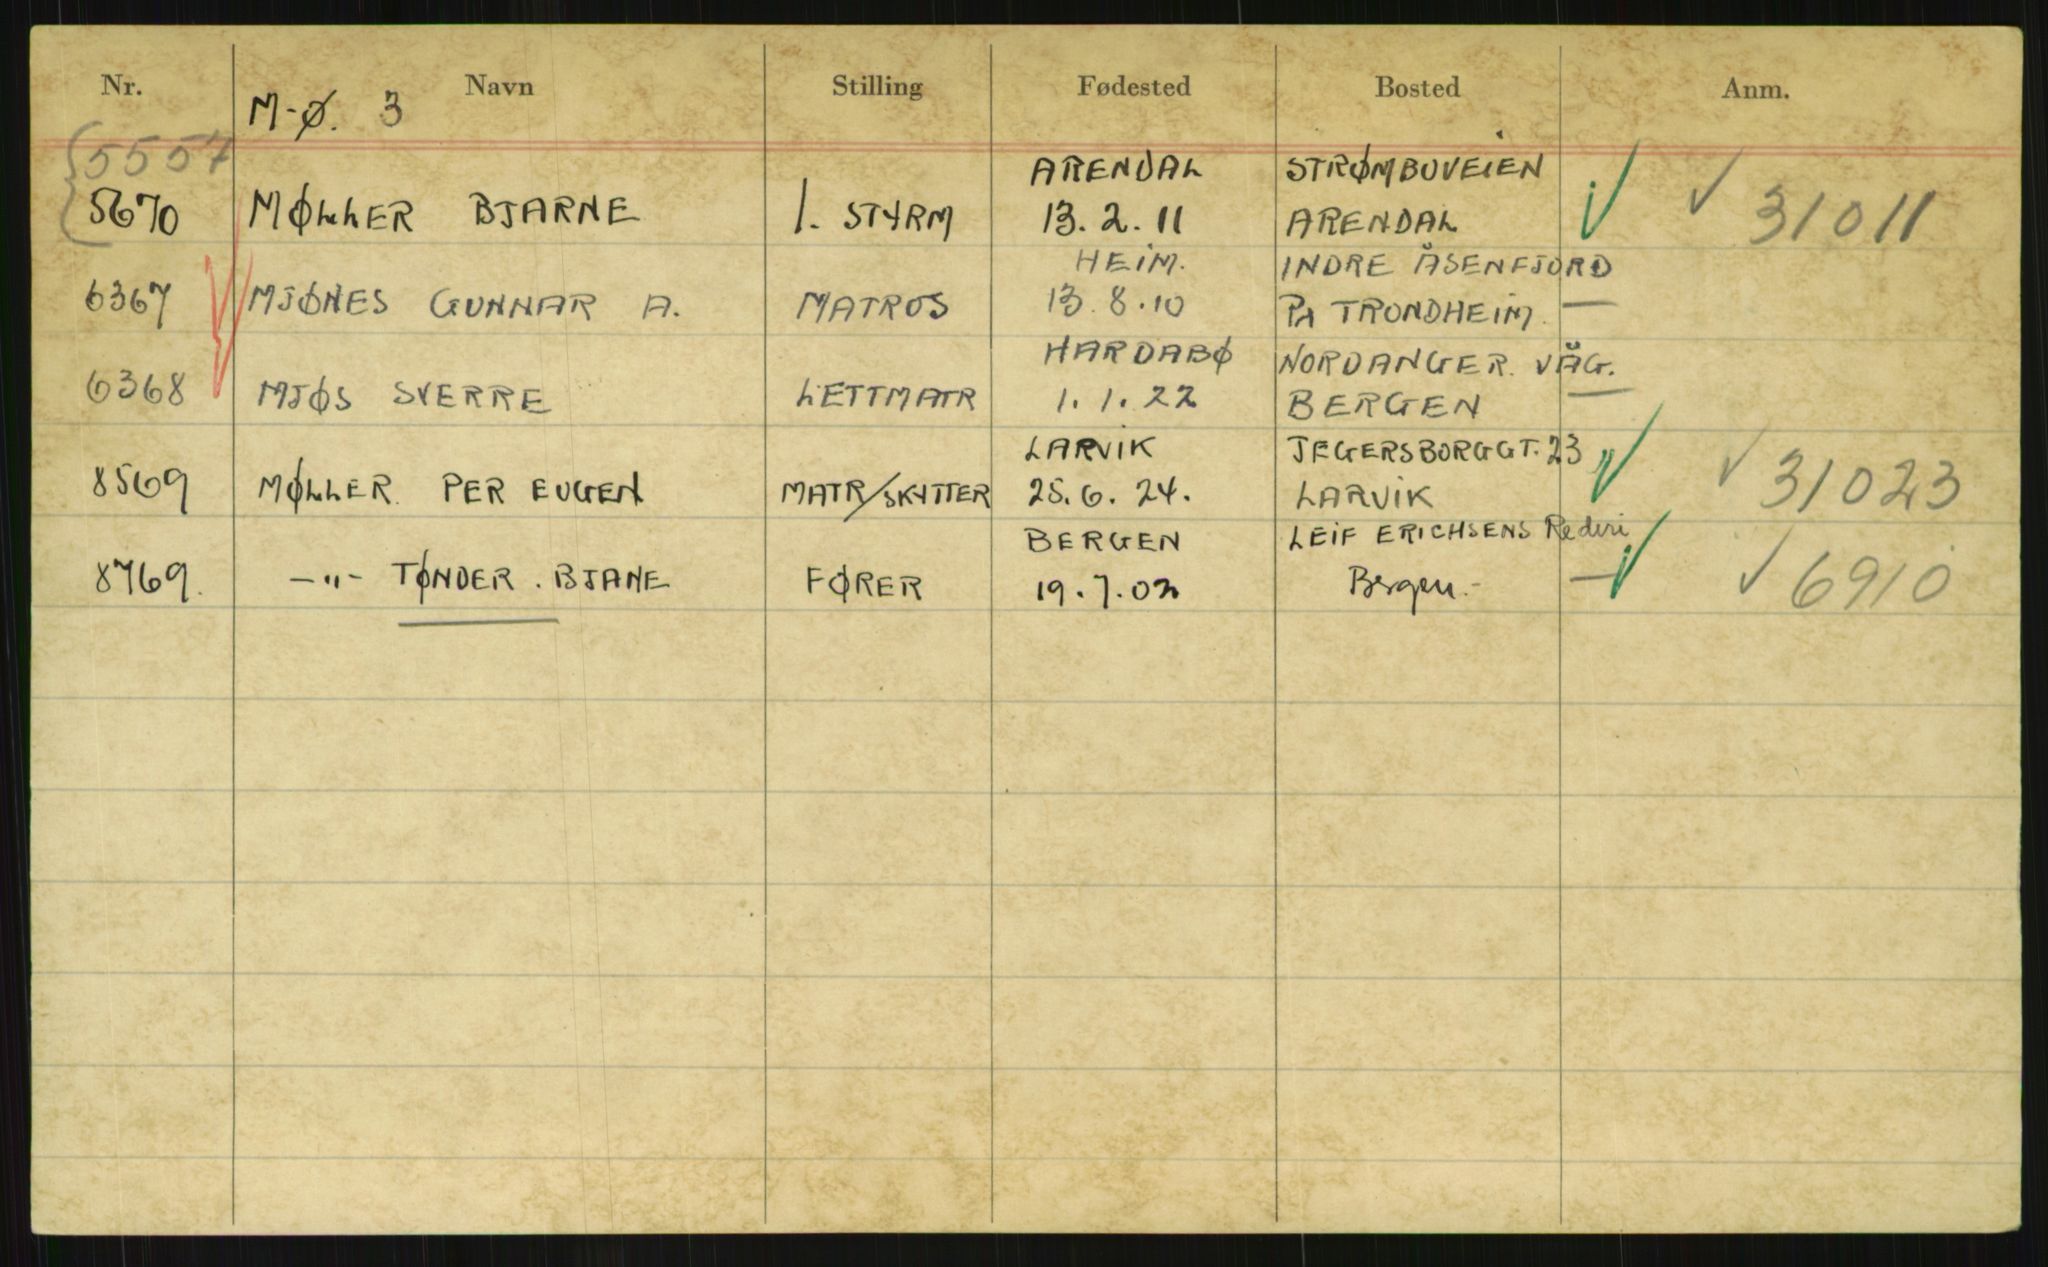 Nr. Navn Stilling Fødested Bosted Anm.
M-Ø. 3
5557 ARENDAL STRØMBUVEIEN
5670 MØLLER BJARNE 1. STYRM 13.2.11 ARENDAL √ √ 31011
HEIM. INDRE ÅSENFJORD
6367 MJØNES GUNNAR A. MATROS 13.8.10 PA TRONDHEIM. —
HARDABØ NORDANGER VÅG.
6368 MJØS SVERRE LETTMATR 1.1.22 BERGEN —
LARVIK JEGERSBORGGT. 23
8569 MØLLER PER EUGEN MATR/SKYTTER 25.6.24. LARVIK √ √ 31023
BERGEN LEIF ERICHSENS Rederi
8769. —"— TØNDER. BJANE FØRER 19.7.02 Bergen.- — √ √ 6910